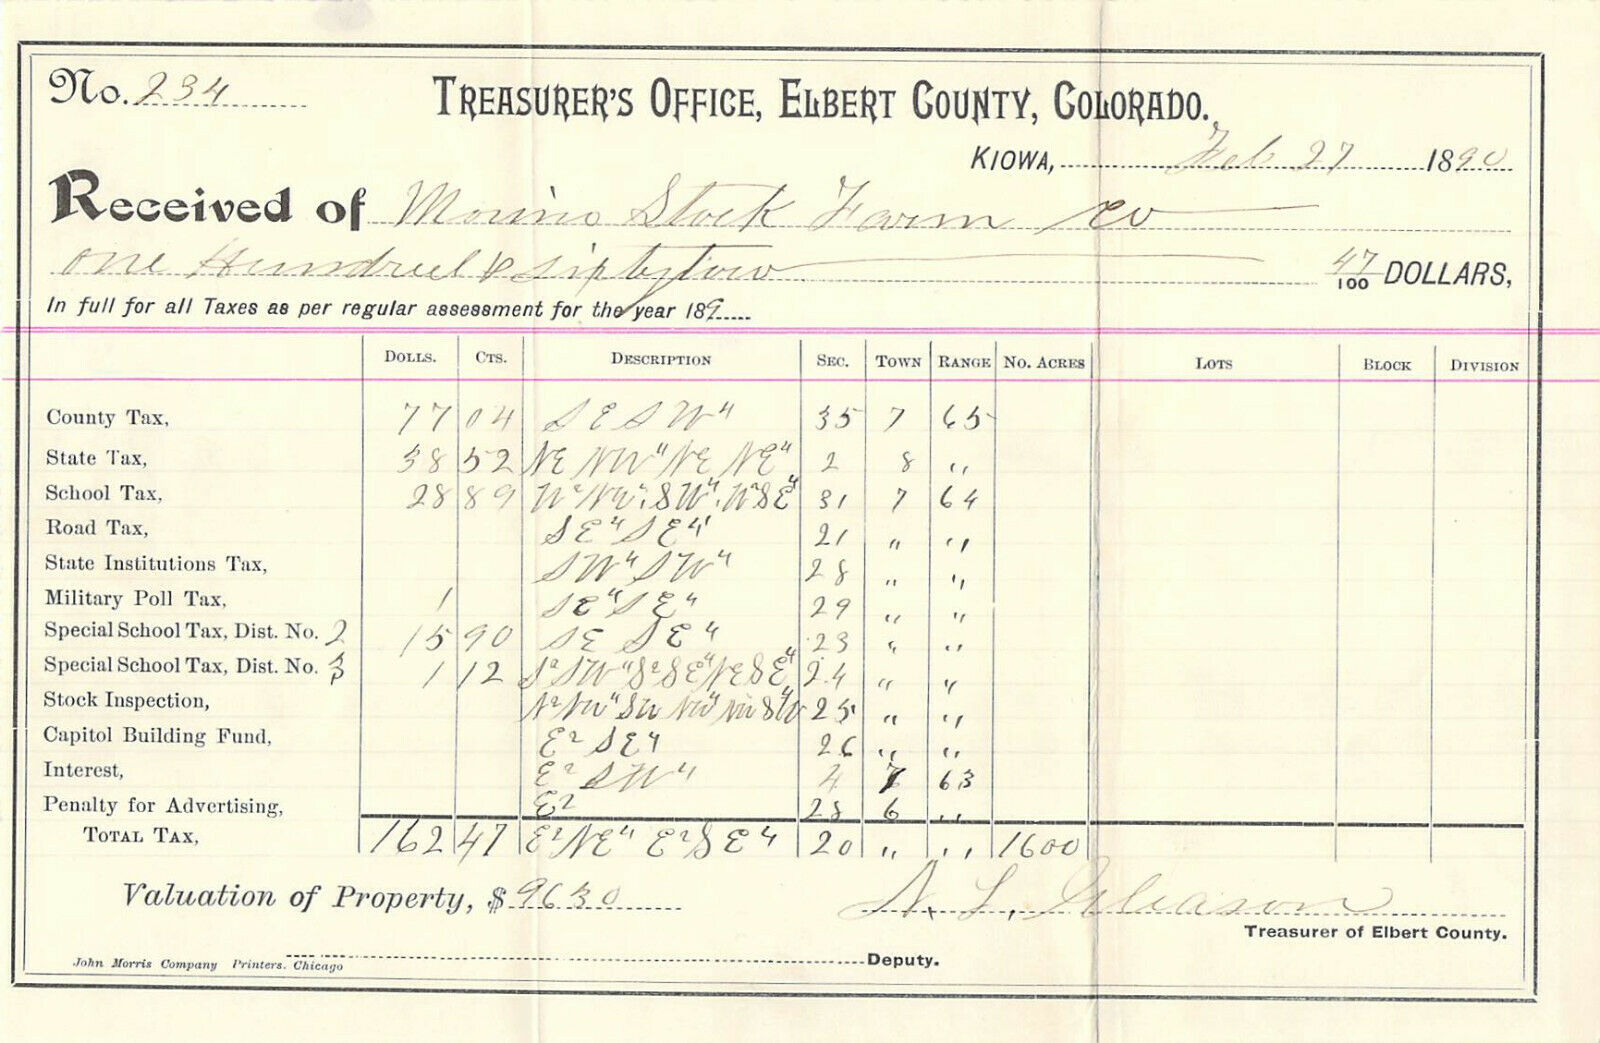 No. 234 TREASURER'S OFFICE, ELBERT COUNTY, COLORADO.
KIOWA, Feb 27 1890
Received of Morino Stock Farm Co
One Hundred & Sixtytwo 47/100 DOLLARS,
In full for all Taxes as per regular assessment for the year 189
DOLLS. CTS. DESCRIPTION SEC. TOWN RANGE NO. ACRES LOTS BLOCK DIVISION
County Tax, 77 04 SE SW" 35 7 65
State Tax, 38 52 NE NW" NE NE" 2 8 "
School Tax, 28 89 W2 NW". SW". W2 SE" 31 7 64
Road Tax, SE" SE" 21 " "
State Institutions Tax, SW" SW" 28 " "
Military Poll Tax, 1 SE" SE" 29 " "
Special School Tax, Dist. No. 2 15 90 SE SE" 23 " "
Special School Tax, Dist. No. 3 1 12 S2 SW" S2 SE" NE SE" 24 " "
Stock Inspection, N2 NW" SW NW" NW SW 25 " "
Capitol Building Fund, E2 SE" 26 " "
Interest, E2 SW" 4 7 63
Penalty for Advertising, E2 28 6 "
TOTAL TAX, 162 47 E2 NE" E2 SE" 20 " " 1600
Valuation of Property, $ 9630
Gleason
Treasurer of Elbert County.
John Morris Company Printers. Chicago Deputy.